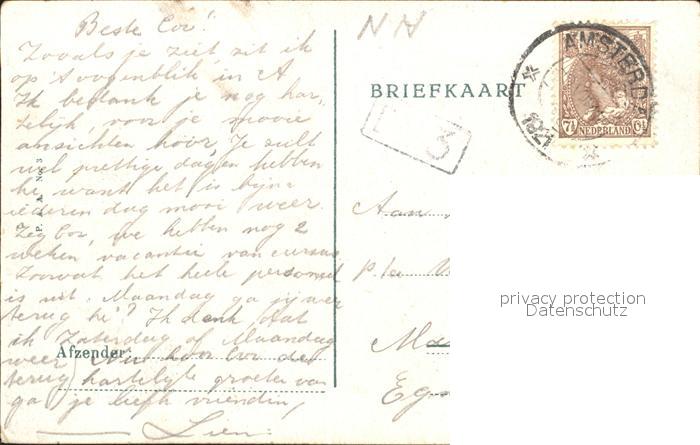 Beste Cor!
Zooals je ziet, zit ik
op 't oogenblik in A
Ik bedank je nog har-
telijk, voor je mooie
ansichten hoor, Je zult
wel prettige dagen hebben
hè, want het is bijna
iederen dag mooi weer.
Zeg Cor, we hebben nog 2
weken vacantie van cursus
Zoowat het heele personeel
is uit. Maandag ga jij weer
terug hè? Ik denk, dat
ik Zaterdag of Maandag
weer. Nu hoor Cor de
terug hartelijke groeten van
ga je liefh vriendin,
Lien.
Afzender:
P. A. A. No. 3
NH
BRIEFKAART
3
AMSTERDA
7½ NEDERLAND Ct
Aan
p/a
Ma
Eg
privacy protection
Datenschutz